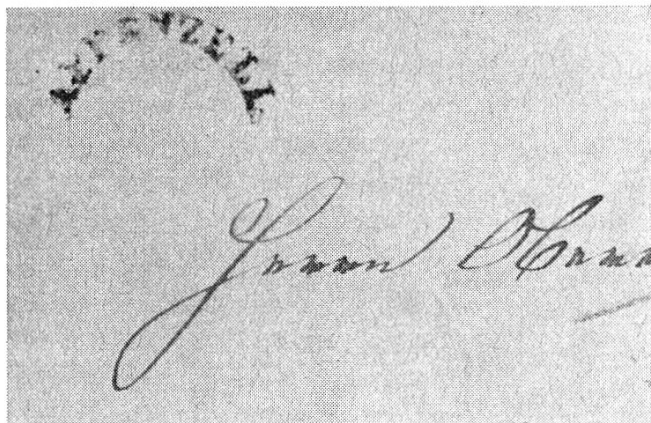 APPENZELL
Herrn